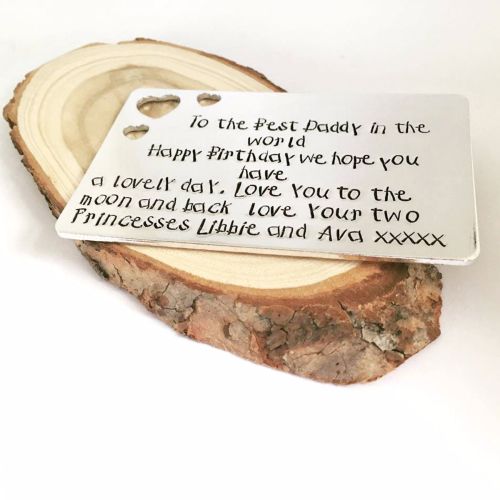 To the Best Daddy in the
world
Happy Birthday we hope you
have
a lovely day. Love you to the
moon and back love your two
Princesses Libbie and Ava xxxxx